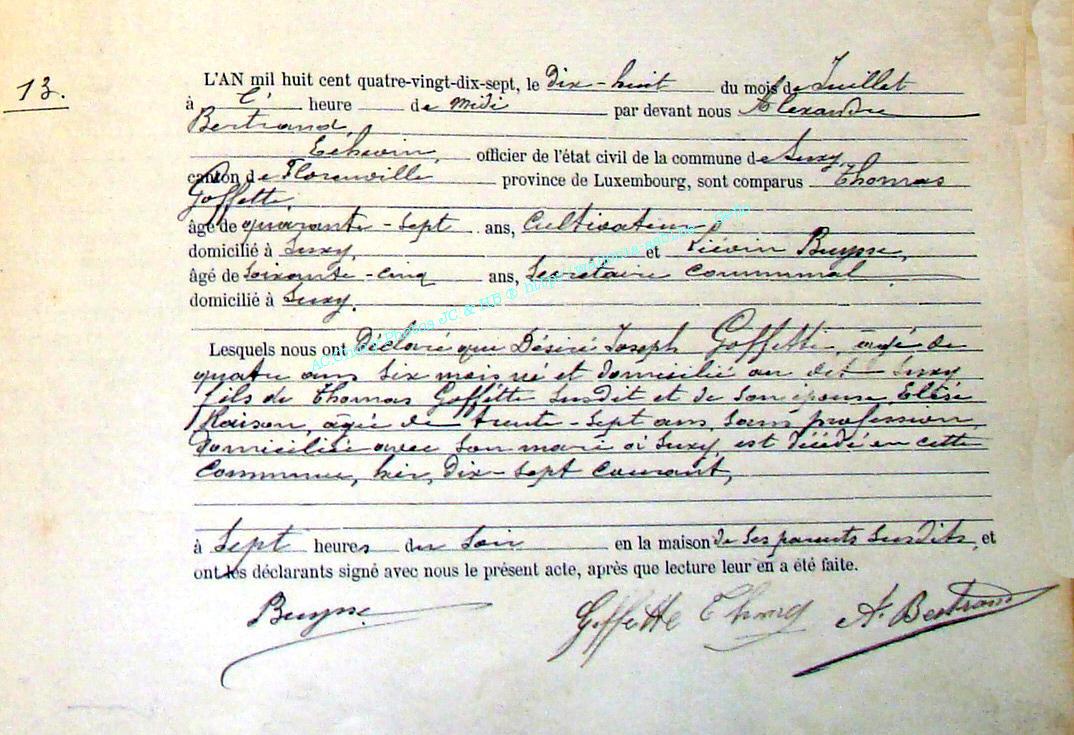 13.
L'AN mil huit cent quatre-vingt-dix-sept, le Dix-huit du mois de Juillet
à l' heure de midi par devant nous Alexandre
Bertrand,
Echevin, officier de l'état civil de la commune de Suxy,
canton de Florenville province de Luxembourg, sont comparus Thomas
Goffette,
âgé de quarante-sept ans, Cultivateur,
domicilié à Suxy, et Liévin Buysse,
âgé de Soixante-cinq ans, Secrétaire communal
domicilié à Suxy.
Lesquels nous ont Déclaré que Désiré Joseph Goffette, agé de
quatre ans six mois né et domicilié au dit Suxy
fils de Thomas Goffette susdit et de son épouse
âgée de trente-sept ans, sans profession,
domiciliée avec son mari à Suxy, est décédé en cette
Commune, hier, Dix-sept Courant,
à Sept heures du Soir en la maison de ses parents susdits, et
ont les déclarants signé avec nous le présent acte, après que lecture leur en a été faite.
Buysse Goffette Thomas A. Bertrand